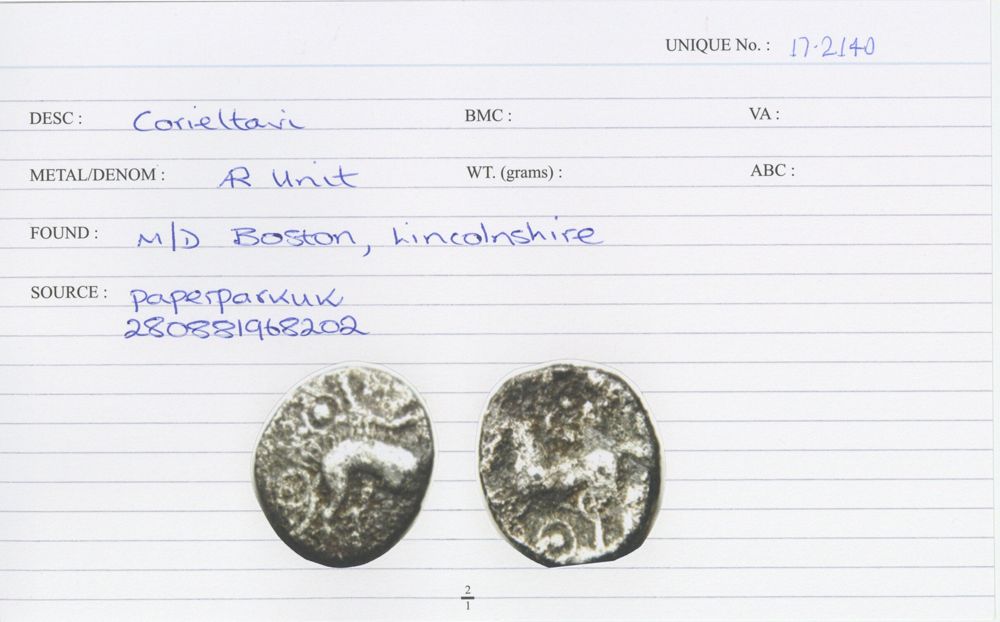 UNIQUE No. : 17.2140
DESC : Corieltavi BMC : VA :
METAL/DENOM : AR Unit WT. (grams) : ABC :
FOUND : M/D Boston, Lincolnshire
SOURCE : paperparkuk
280881968202
2
1